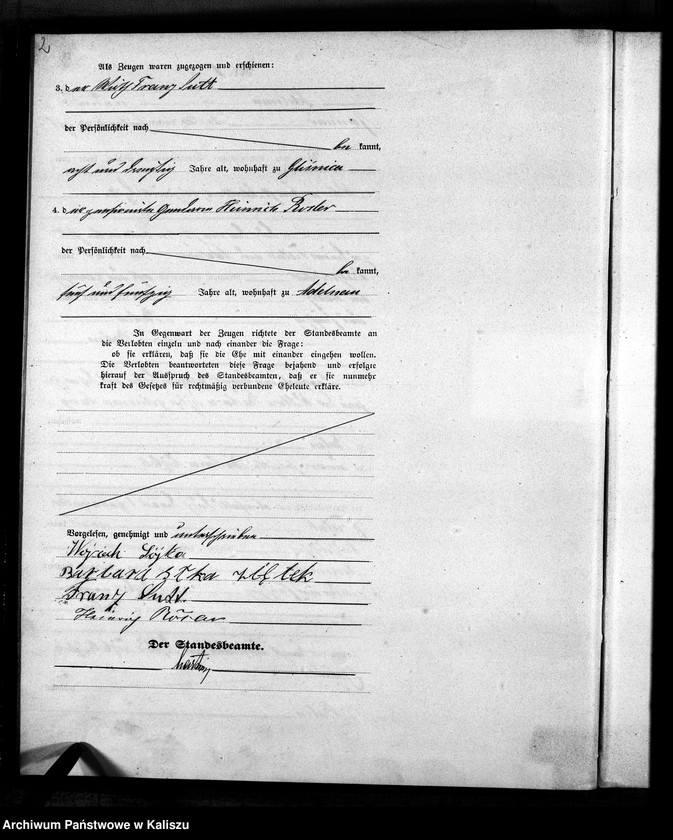 2
Als Zeugen waren zugezogen und erschienen:
3. der Wirth Franz
der Persönlichkeit nach
be kannt,
acht und dreißig Jahre alt, wohnhaft zu Glisnica
4. der pensionirte Gendarm Heinrich
der Persönlichkeit nach
be kannt,
fünf und fünfzig Jahre alt, wohnhaft zu Adelnau
In Gegenwart der Zeugen richtete der Standesbeamte an
die Verlobten einzeln und nach einander die Frage:
ob sie erklären, daß sie die Ehe mit einander eingehen wollen.
Die Verlobten beantworteten diese Frage bejahend und erfolgte
hierauf der Ausspruch des Standesbeamten, daß er sie nunmehr
kraft des Gesetzes für rechtmäßig verbundene Eheleute erkläre.
Vorgelesen, genehmigt und unterschrieben
Wojciech
Barbara
Franz
Heinrich
Der Standesbeamte.
Archiwum Państwowe w Kaliszu